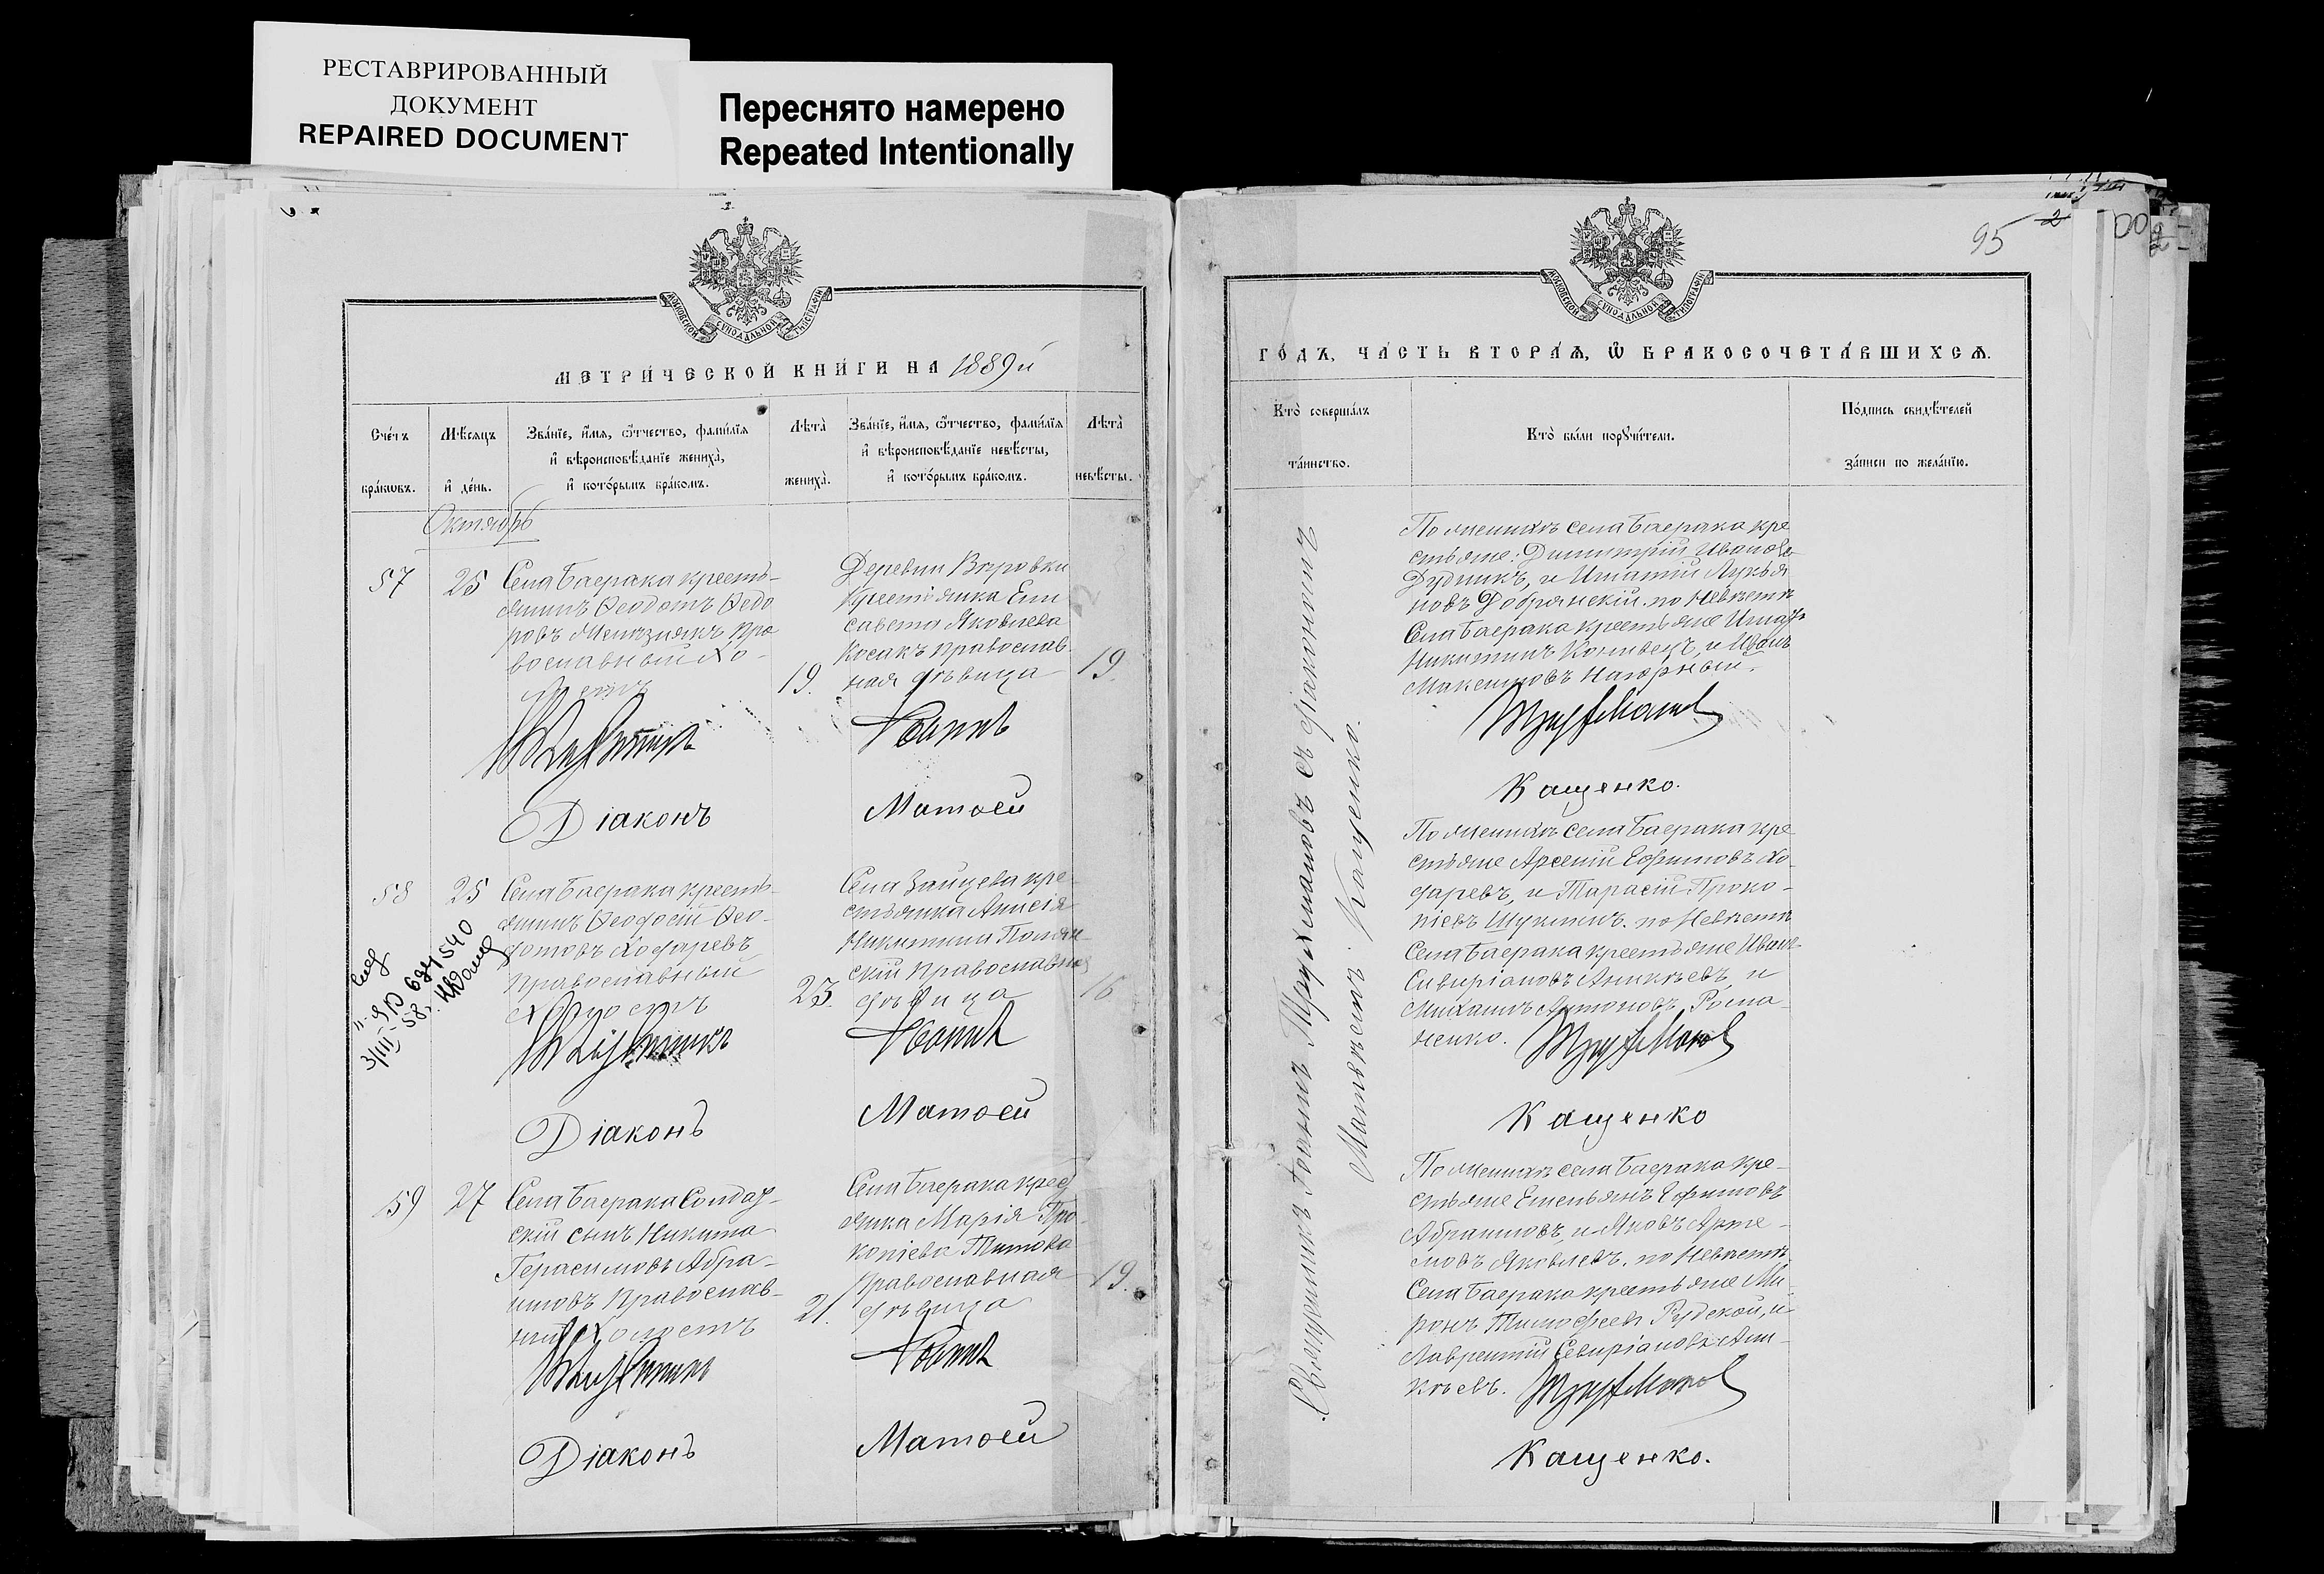 РЕСТАВРИРОВАННЫЙ
ДОКУМЕНТ
REPAIRED DOCUMENT
Переснято намерено
Repeated Intentionally
МОСКОВСКОЙ СѴНОДАЛЬНОЙ ТИПОГРАФІИ
МЕТРИ́ЧЕСКОЙ КНИ́ГИ НА 1889й
Сче́тъ
бра́кѡвъ.
Мѣ́сяцъ
и҆ де́нь.
Зва́нїе, и҆́мѧ, ѻ҆́тчество, фами́лїѧ
и҆ вѣроисповѣ́данїе жениха̀,
и҆ кото́рымъ бра́комъ.
Лѣта̀
жениха̀.
Зва́нїе, и҆́мѧ, ѻ҆́тчество, фами́лїѧ
и҆ вѣроисповѣ́данїе невѣ́сты,
и҆ кото́рымъ бра́комъ.
Лѣта̀
невѣ́сты.
Октябрь
57
25
Села Баерака кресть-
янинъ Ѳеодотъ Ѳедо
ровъ
Пра
вославный Хо-
19.
Деревни
Крестьянка Ели
савета Яковлева
Косакъ Православ
ная дѣвица
19.
Іоаннъ
Діаконъ
Матѳей
58
25
Села Баерака кресть-
янинъ Ѳеодосій Ѳео-
дотовъ Ходаревъ
Православный
Холостъ
23.
Села Зайцева кре
стьянка Анисія
Никитина
Православная
дѣвица
16
Іоаннъ
Діаконъ
Матѳей
59
27
Села Баерака Солдат-
скій сынъ Никита
Герасимовъ Абра-
имовъ Православ-
ный Холостъ
21.
Села Баерака крест
янка Марія Про
копіева Титова
Православная
дѣвица
19.
Іоаннъ
Діаконъ
Матѳей
95
2
МОСКОВСКОЙ СѴНОДАЛЬНОЙ ТИПОГРАФІИ
ГО́ДЪ, ЧА́СТЬ ВТОРА́Ѧ, Ѽ БРАКОСОЧЕТА́ВШИХСѦ.
Кто̀ соверша́лъ
та́инство.
Кто̀ бы́ли порꙋчи́тели.
По́дпись свидѣ́телей
за́писи по жела́нїю.
Священникъ Іоаннъ съ діакономъ
Матвѣемъ Кащенко.
По женихѣ села Баерака кре
стьяне: Димитрій Ивановъ
Дудникъ, и Игнатій Лукья
новъ Добрянскій. по Невѣстѣ
Села Баерака крестьяне Игнатъ
Никитинъ и Иванъ
Максимовъ Нагорный.
Кащенко.
По женихѣ села Баерака кре
стьяне Арсеній Ефимовъ Хо-
даревъ, и Тарасій Проко-
піевъ Щукинъ. по Невѣстѣ
Села Баерака крестьяне Иванъ
Сивиріановъ Аникѣевъ, и
Михаилъ Антоновъ Рома
ненко.
Кащенко
По женихѣ села Баерака кре-
стьяне Емельянъ Ефимовъ
Абраимовъ, и Яковъ Арте-
мовъ Яковлевъ. по Невѣстѣ
Села Баерака крестьяне Ми-
ронъ Тимофеевъ Рудской, и
Лаврентій Севиріановъ Ани-
кѣевъ.
Кащенко.